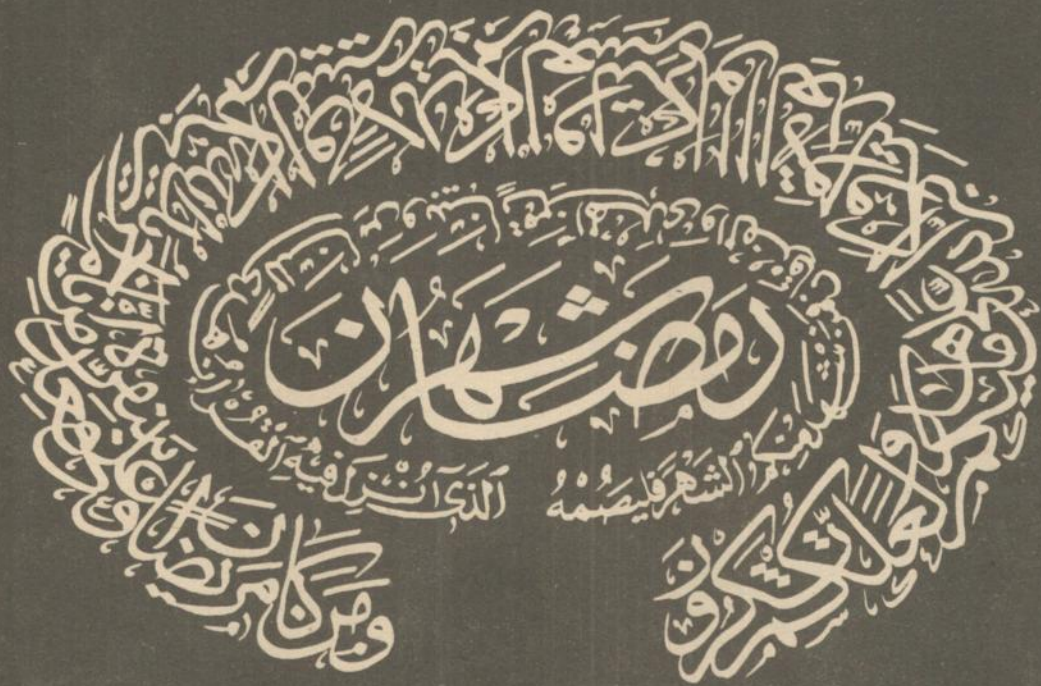 شهر رمضان
الذى انزل فيه القران هدى للناس وبينات من الهدى والفرقان فمن شهد منكم الشهر فليصمه
ومن كان مريضا او على سفر فعدة من ايام اخر يريد الله بكم اليسر ولا يريد بكم العسر ولتكملوا العدة ولتكبروا الله على ما هداكم ولعلكم تشكرون